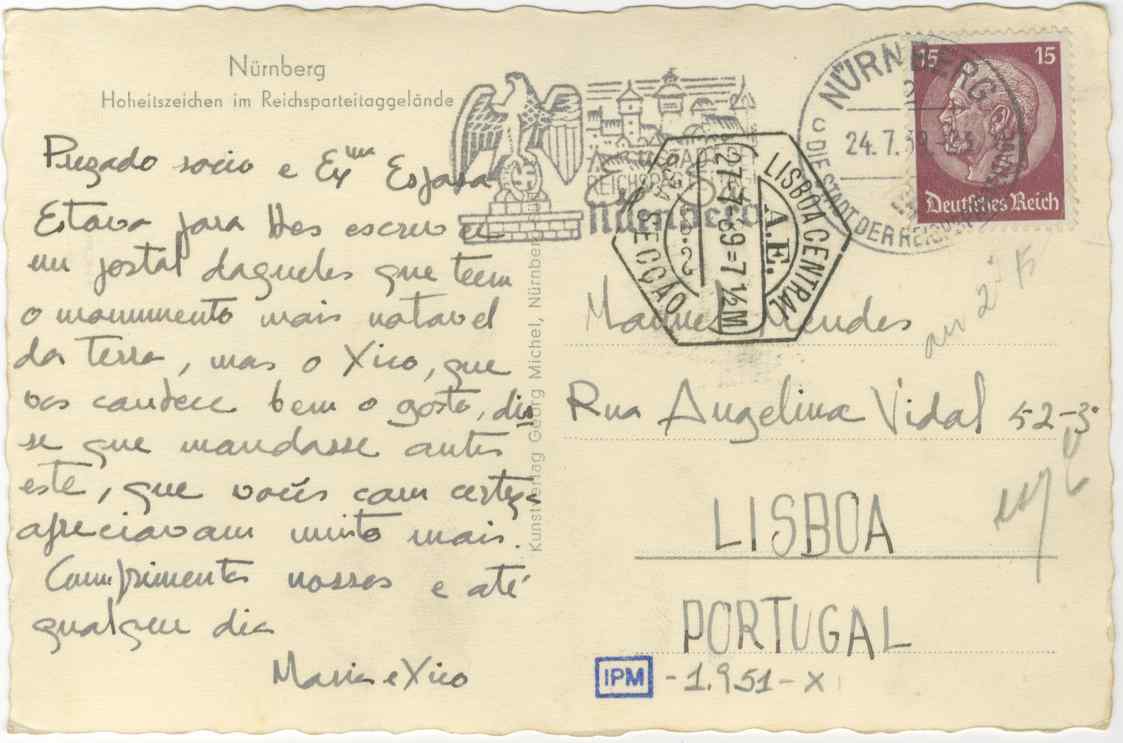 Nürnberg
Hoheitszeichen im Reichsparteitaggelände
Prezado socio e Exma Esposa
Estava para lhes escrever
um postal daqueles que teem
o monumento mais notavel
da terra, mas o Xico, que
vos conhece bem o gosto, diz
se que mandasse antes
este, que vocês com certeza
apreciavam muito mais.
Cumprimentos nossos e até
qualquer dia
Maria e Xico
Kunstverlag Georg Michel, Nürnberg
Nürnberg
NÜRNBERG
24.7.39
DIE STADT DER REICHS
15 15
Deutsches Reich
LISBOA CENTRAL
A.E.
27=7=39=7 ½M
SECÇÃO
Manuel Mendes
Rua Angelina Vidal 52-3º
LISBOA
PORTUGAL
IPM - 1.951 - X